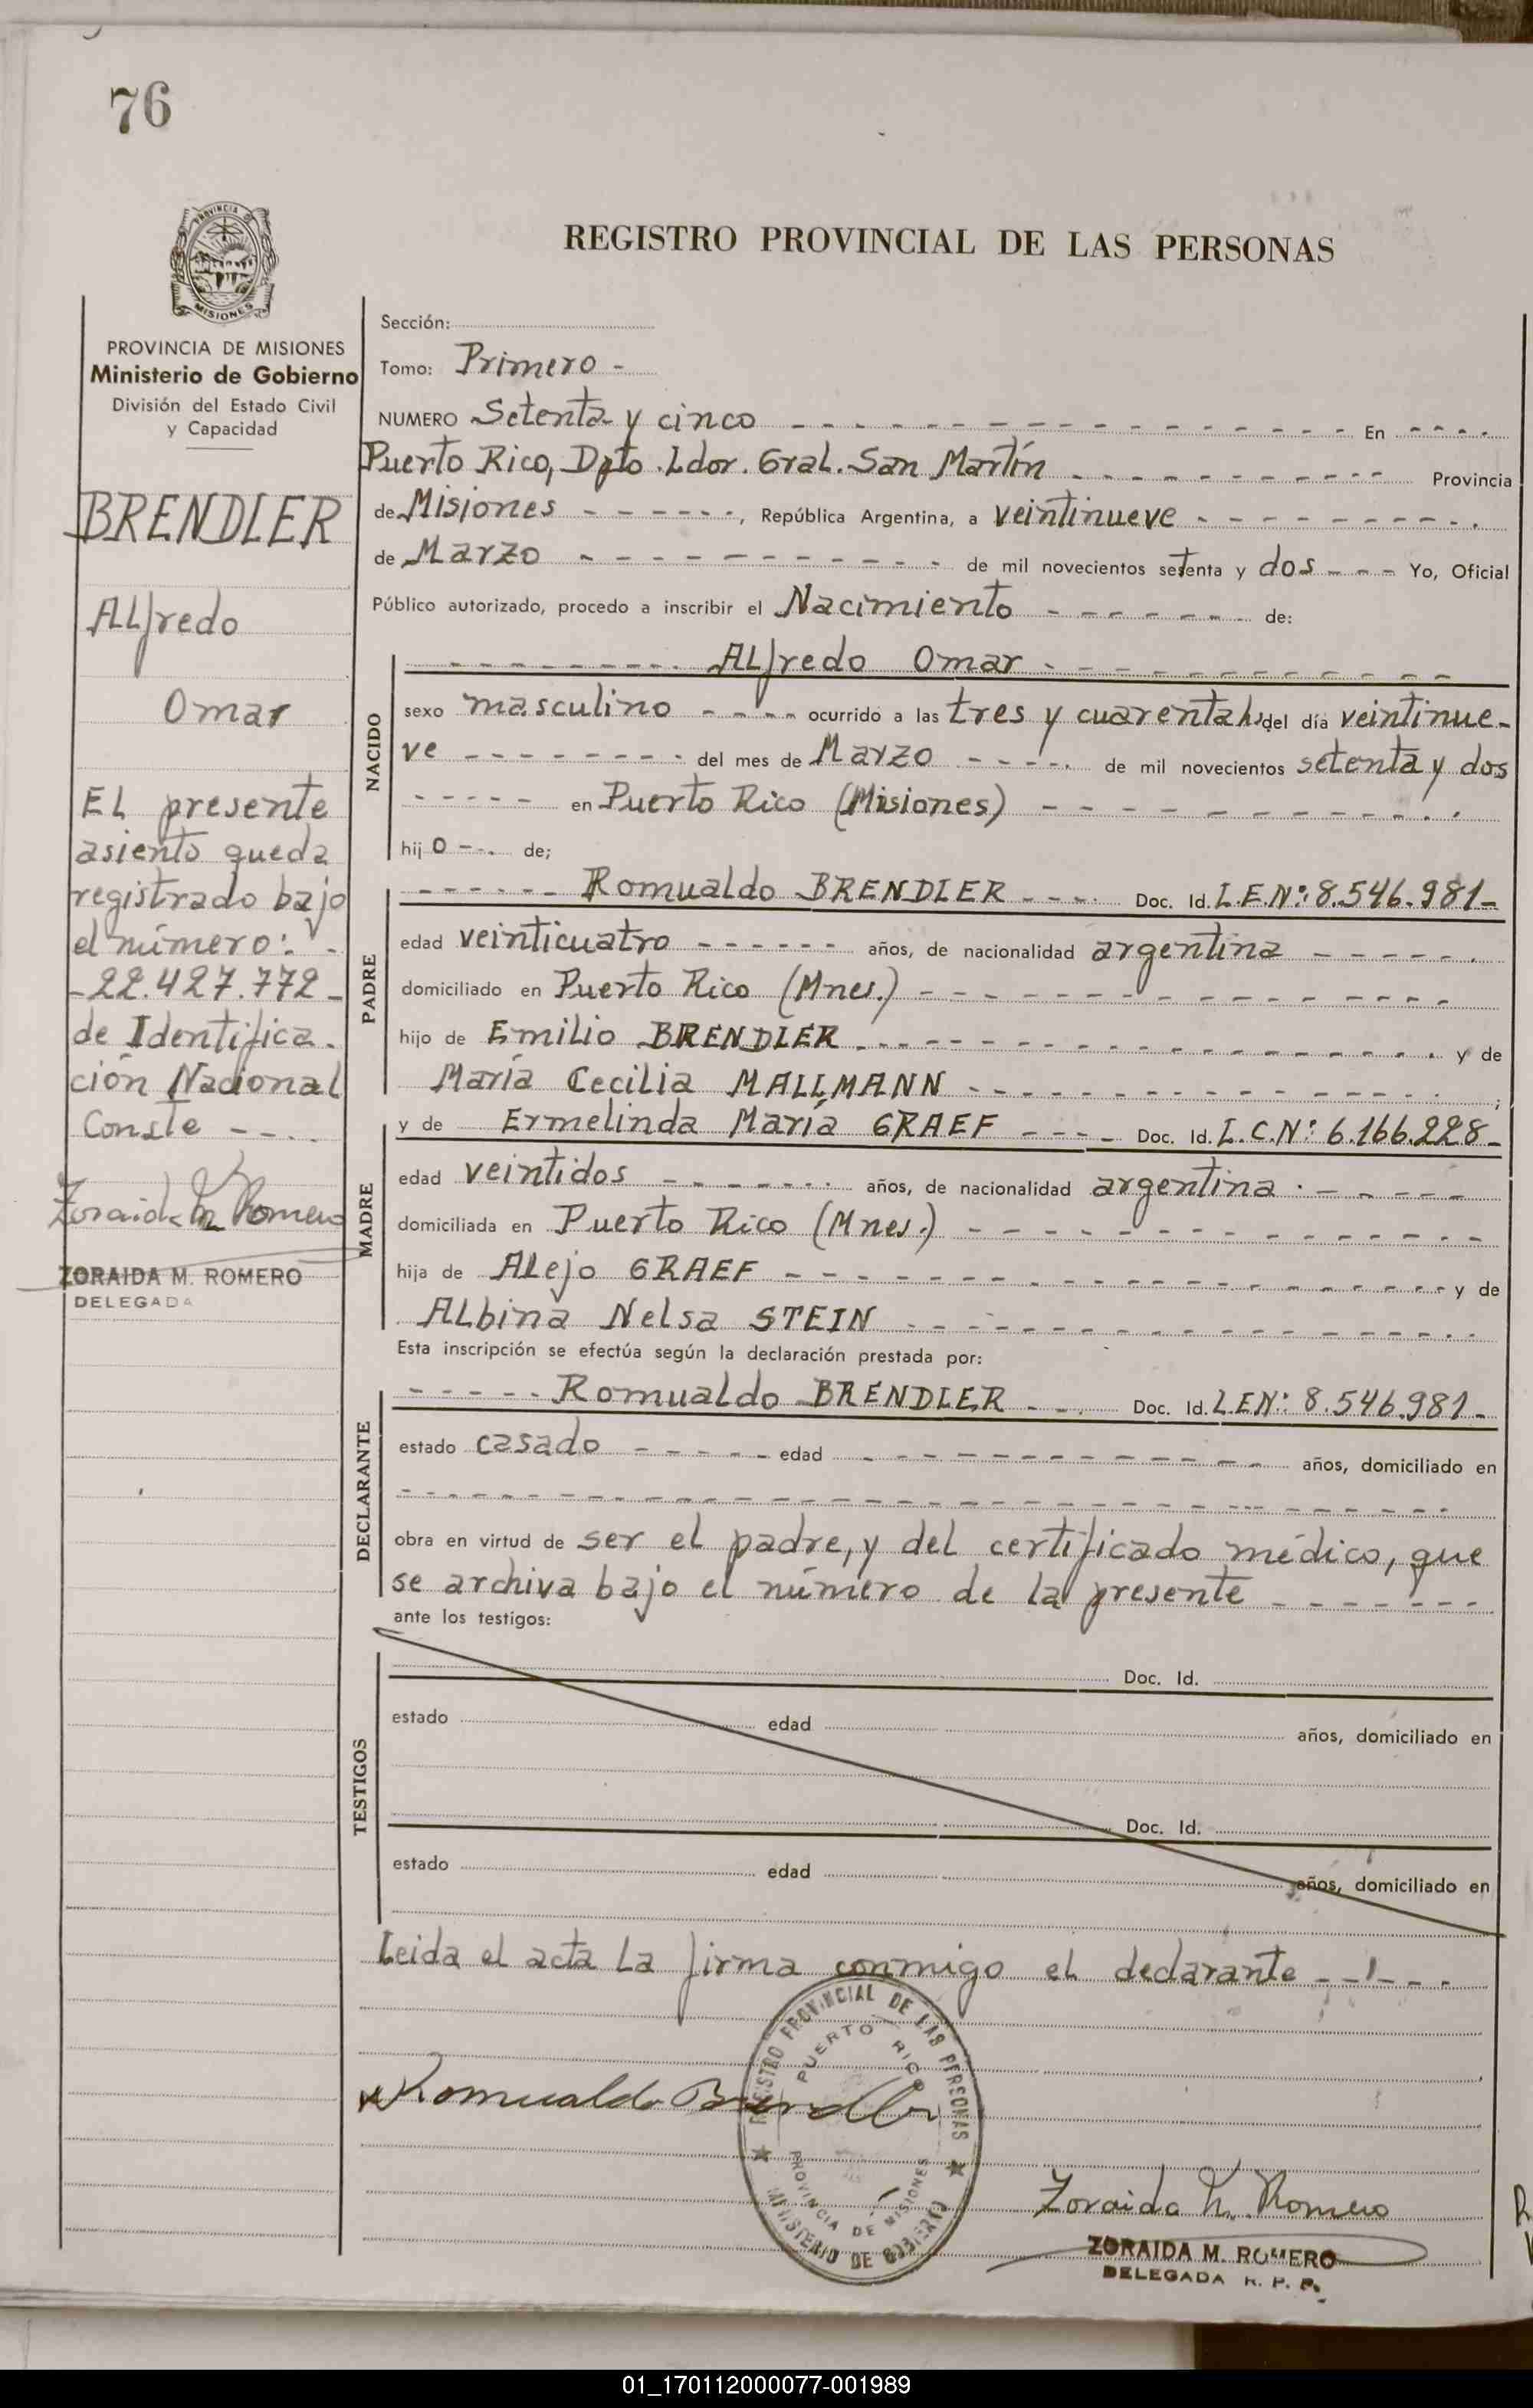 76
PROVINCIA DE
MISIONES
REGISTRO PROVINCIAL DE LAS PERSONAS
PROVINCIA DE MISIONES
Ministerio de Gobierno
División del Estado Civil
y Capacidad
BRENDLER
Alfredo
Omar
El presente
asiento queda
registrado bajo
el número: -
- 22.427.772 -
de Identifica-
ción Nacional
Conste - - - .
Zoraida M Romero
ZORAIDA M. ROMERO
DELEGADA
Sección:
Tomo: Primero -
NUMERO Setenta y cinco - - - - En - - - -
Puerto Rico, Dpto. Ldor. Gral. San Martín - - - - Provincia
de Misiones - - - -, República Argentina, a veintinueve - - - -
de Marzo - - - - de mil novecientos setenta y dos - - - Yo, Oficial
Público autorizado, procedo a inscribir el Nacimiento - - - - de:
NACIDO
- - - - Alfredo Omar - - - -
sexo masculino - - - - ocurrido a las tres y cuarenta hs. del día veintinue-
ve - - - - del mes de Marzo - - - - de mil novecientos setenta y dos
- - - - en Puerto Rico (Misiones) - - - -
hij o - - . de;
PADRE
- - - - Romualdo BRENDLER - - - - Doc. Id. L.E.Nº: 8.546.981 -
edad veinticuatro - - - - años, de nacionalidad argentina - - - -
domiciliado en Puerto Rico (Mnes.) - - - -
hijo de Emilio BRENDLER - - - - y de
María Cecilia MALLMANN - - - - ;
MADRE
y de Ermelinda María GRAEF - - - - Doc. Id. L.C.Nº: 6.166.228 -
edad veintidos - - - - años, de nacionalidad argentina - - - -
domiciliada en Puerto Rico (Mnes.) - - - -
hija de Alejo GRAEF - - - - y de
Albina Nelsa STEIN - - - -
Esta inscripción se efectúa según la declaración prestada por:
DECLARANTE
- - - - Romualdo BRENDLER - - - Doc. Id. L.E.Nº: 8.546.981 -
estado casado - - - - edad - - - - años, domiciliado en
- - - -
obra en virtud de ser el padre, y del certificado médico, que
se archiva bajo el número de la presente - - - -
ante los testigos:
TESTIGOS
Doc. Id.
estado edad años, domiciliado en
Doc. Id.
estado edad años, domiciliado en
Leida el acta la firma conmigo el declarante - - - -
REGISTRO PROVINCIAL DE LAS PERSONAS
PUERTO RICO
PROVINCIA DE MISIONES
MINISTERIO DE GOBIERNO
Romualdo Brendler
Zoraida M. Romero
ZORAIDA M. ROMERO
DELEGADA R. P. P.
01_170112000077-001989